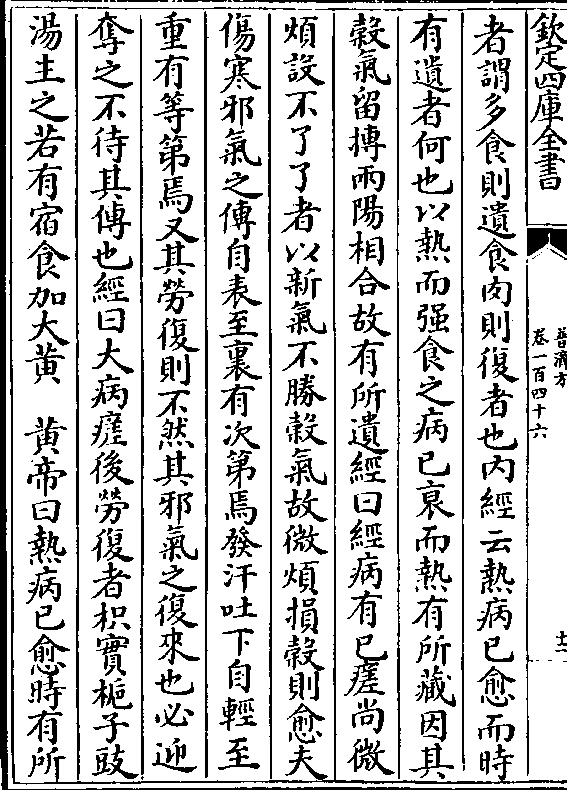 欽定四庫全書
普濟方
卷一百四十六
十二
者謂多食則遺食肉則復者也内經云熱病已愈而時
有遺者何也以熱而强食之病已衰而熱有所藏因其
穀氣留搏兩陽相合故有所遺經曰經病有已瘥尚微
煩設不了了者以新氣不勝榖氣故微煩損榖則愈夫
傷寒邪氣之傳自表至裏有次第焉發汗吐下自輕至
重有等第焉又其勞復則不然其邪氣之復來也必迎
奪之不待其傳也經曰大病瘥後勞復者枳實梔子豉
湯主之若有宿食加大黄　黄帝曰熱病已愈時有所